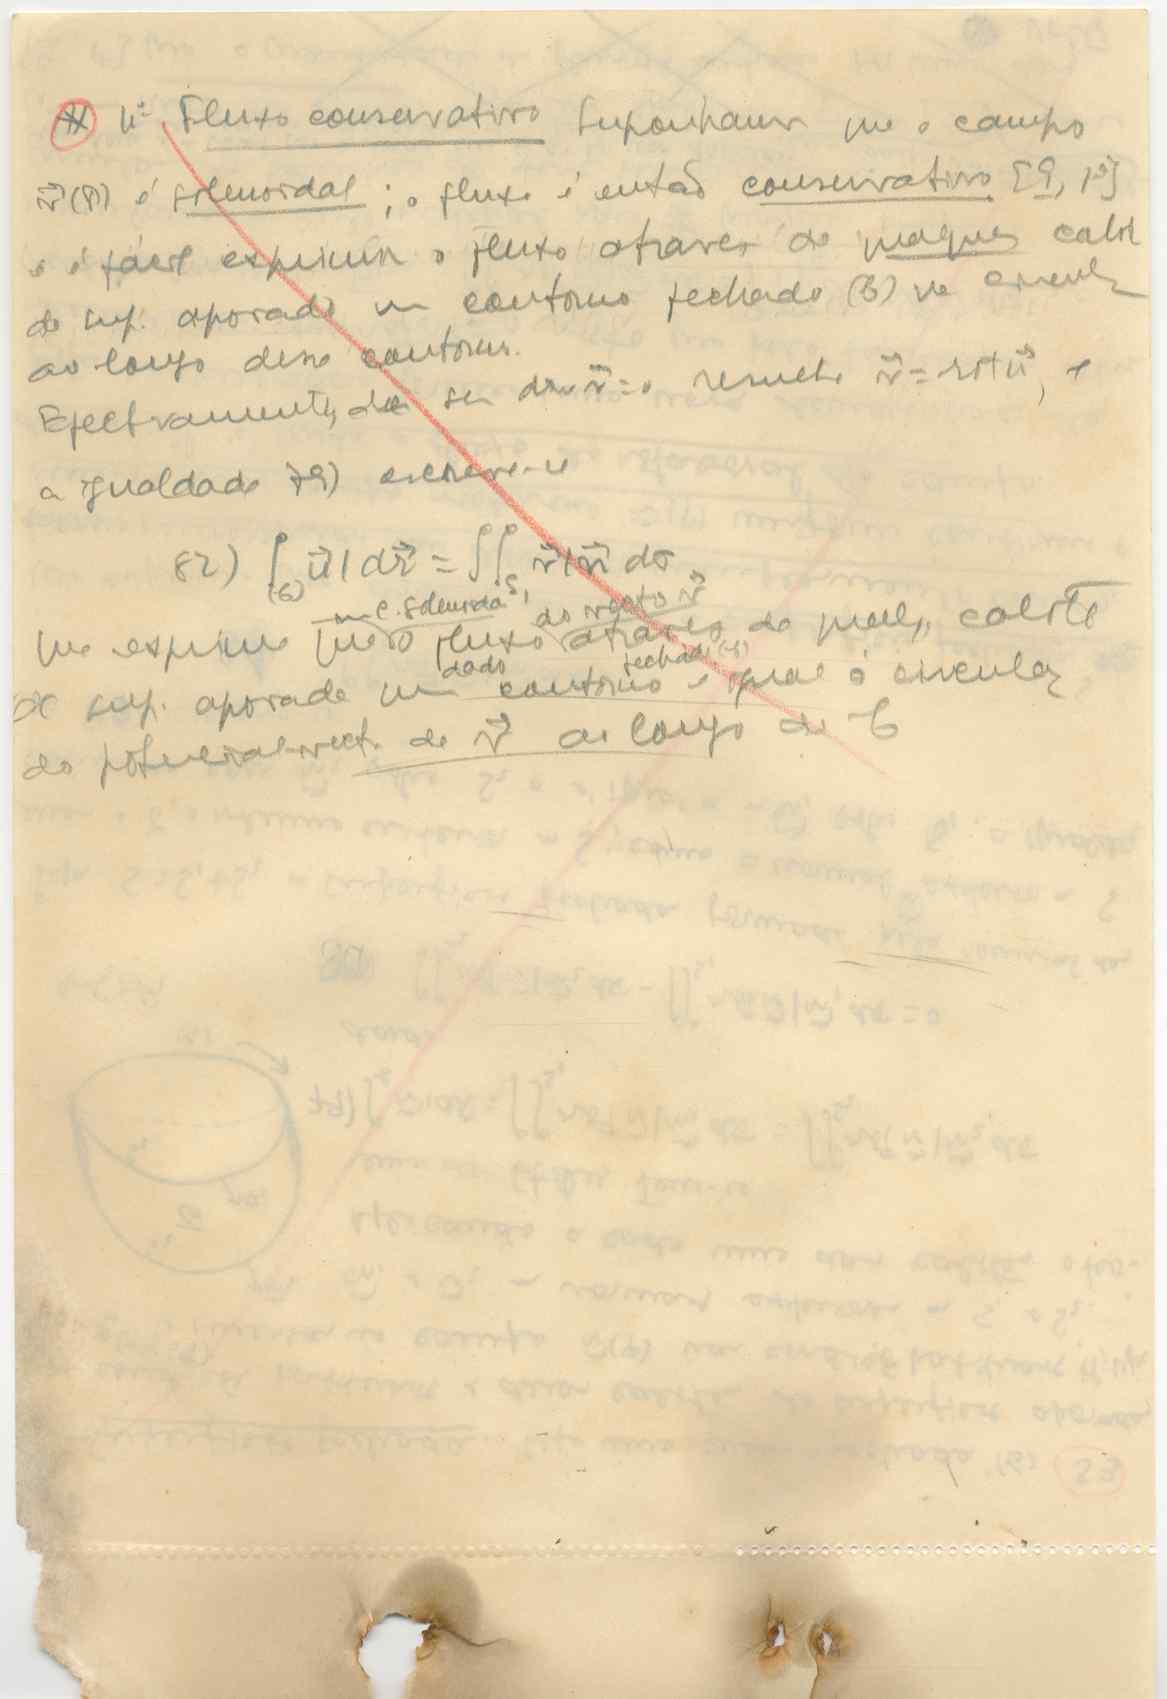 4º Fluxo conservativo Suponhamos que o campo
v⃗(P) é solenoidal ; o fluxo é então conservativo [9, 1º]
e é fácil exprimir o fluxo através de qualquer calote
de sup. apoiada num contorno fechado (C) na circulação
ao longo desse contorno.
Efectivamente, de ser div v⃗ = 0 resulta v⃗ = rot u⃗, e
a igualdade 79) escreve-se
82) ∫(C) u⃗ | dr⃗ = ∫∫S, v⃗ | n⃗ dσ,
que exprime que o fluxo num c. solenoidal do vector v⃗ através de qualq. calote
de sup. apoiada num dado contorno fechado é igual à circulação
do potencial-vect. de v⃗ ao longo de C